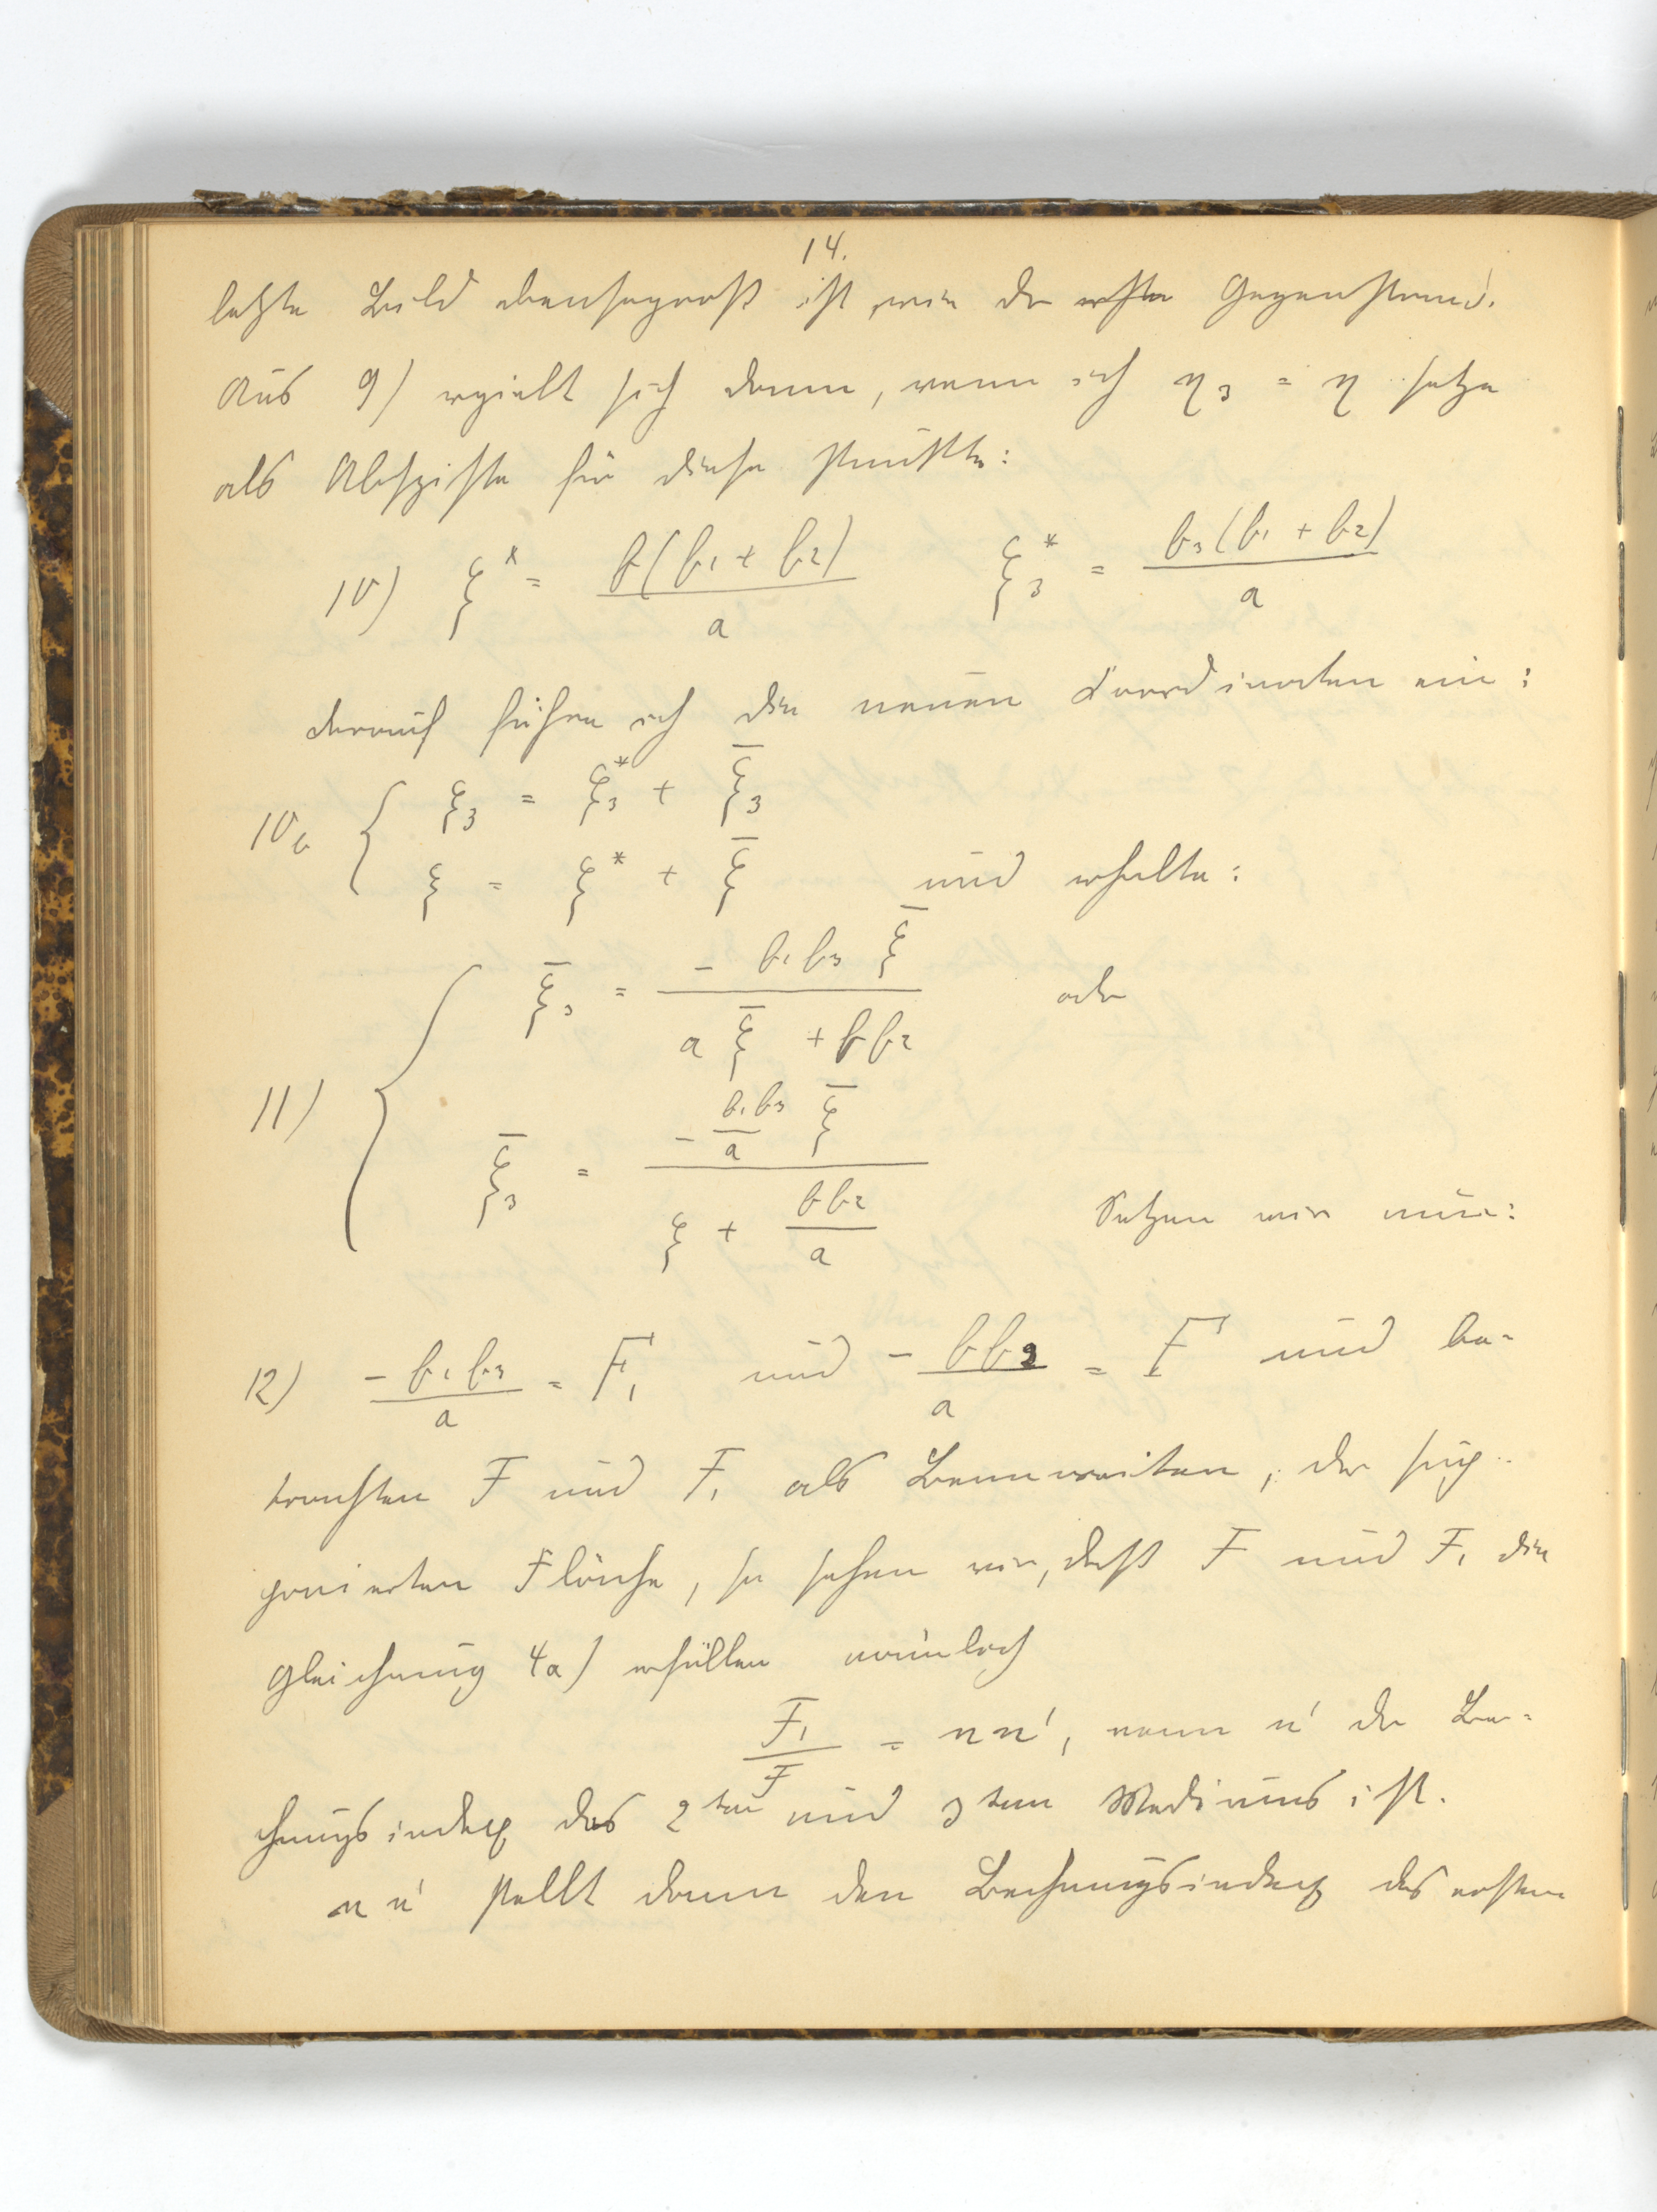 14.
letzte Bild ebensogroß ist, wie der erste Gegenstand.
Aus 9) ergiebt sich dann, wenn ich η₃ = η setze
als Abszisse für diese Punkte:
10) ξ* = b(b₁ + b₂)/a ξ₃* = b₃(b₁ + b₂)/a
darauf führe ich die neuen Koordinaten ein:
10b { ξ₃ = ξ₃* + ξ̄₃
ξ = ξ* + ξ̄ und erhalte:
11) { ξ̄₃ = - b₁b₃ ξ̄ / (a ξ̄ + b b₂) oder
ξ̄₃ = - (b₁b₃/a) ξ̄ / (ξ + b b₂/a) Setzen wir nun:
12) - b₁b₃/a = F₁ und - b b₂/a = F und be-
trachten F und F₁ als Brennweiten, der
Fläche, so sehen wir, daß F und F₁ die
Gleichung 4a) erfüllen nämlich
F₁/F = n n', wenn n' der Bre-
chungsindex des 2ten und 3ten Mediums ist.
n n' stellt dann den Brechungsindex des ersten